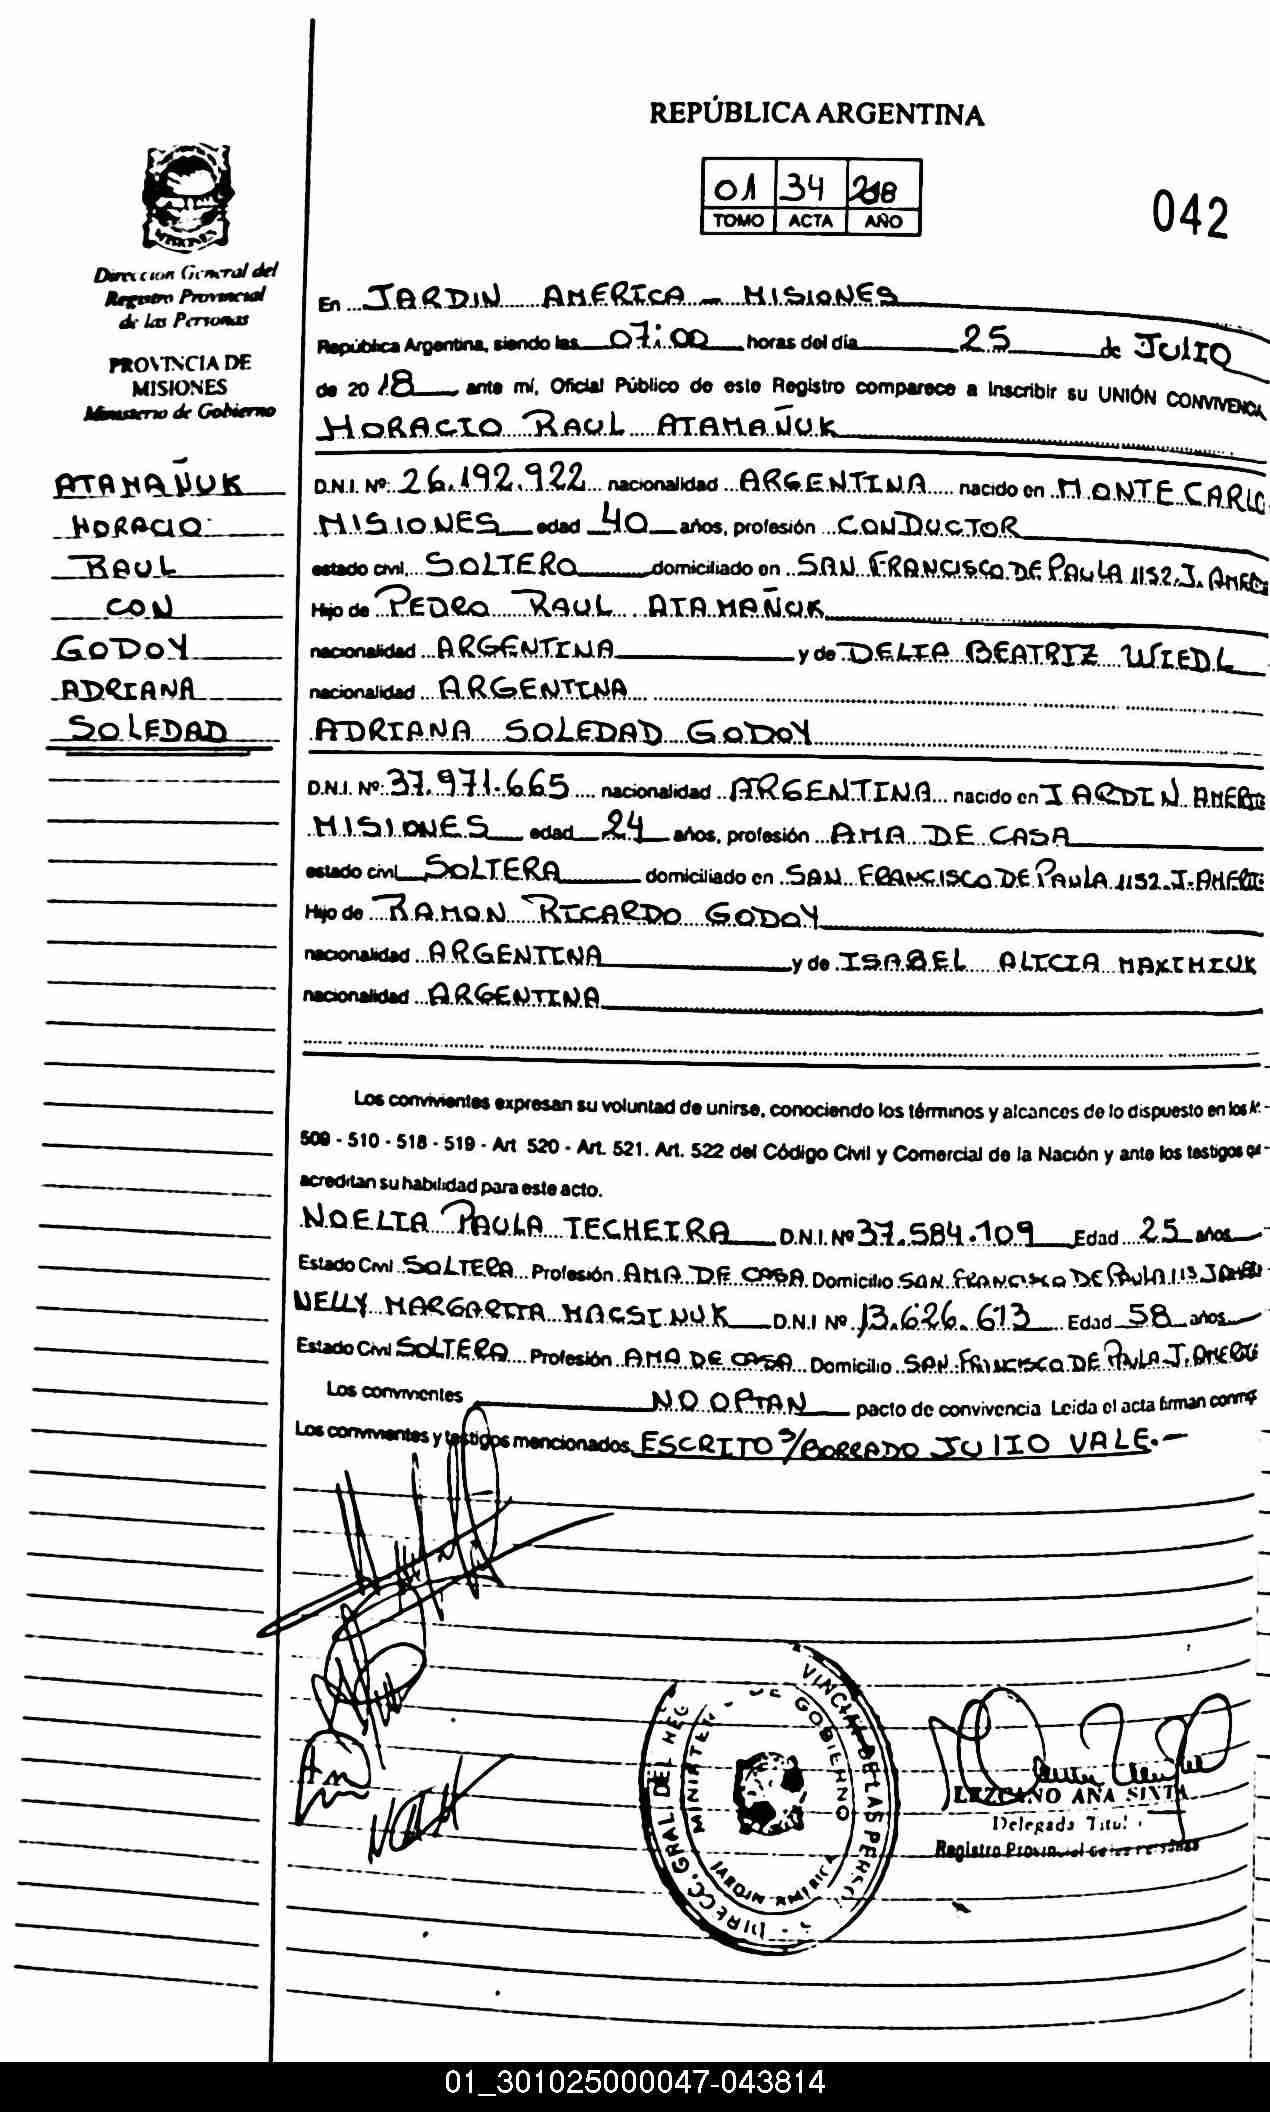 REPÚBLICA ARGENTINA
01 34 2018
TOMO ACTA AÑO
042
Dirección General del
Registro Provincial
de las Personas
PROVINCIA DE
MISIONES
Ministerio de Gobierno
ATAMAÑUK
HORACIO
RAUL
CON
GODOY
ADRIANA
SOLEDAD
En JARDIN AMERICA - MISIONES
República Argentina, siendo las 07:00 horas del día 25 de JULIO
de 2018 ante mí, Oficial Público de este Registro comparece a Inscribir su UNIÓN CONVIVENCIA
HORACIO RAUL ATAMAÑUK
D.N.I. Nº: 26.192.922 nacionalidad ARGENTINA nacido en MONTECARLO
MISIONES edad 40 años, profesión CONDUCTOR
estado civil, SOLTERO domiciliado en SAN FRANCISCO DE PAULA 1152.J. AMERI
Hijo de PEDRO RAUL ATAMAÑUK
nacionalidad ARGENTINA y de DELIA BEATRIZ WIEDL
nacionalidad ARGENTINA
ADRIANA SOLEDAD GODOY
D.N.I. Nº: 37.971.665 nacionalidad ARGENTINA nacido en JARDIN AMERI
MISIONES edad 24 años, profesión AMA DE CASA
estado civil SOLTERA domiciliado en SAN FRANCISCO DE PAULA 1152.J. AMERI
Hijo de RAMON RICARDO GODOY
nacionalidad ARGENTINA y de ISABEL ALICIA MAXIMIUK
nacionalidad ARGENTINA
Los convivientes expresan su voluntad de unirse, conociendo los términos y alcances de lo dispuesto en los A.
509 - 510 - 518 - 519 - Art 520 - Art. 521. Art. 522 del Código Civil y Comercial de la Nación y ante los testigos que
acreditan su habilidad para este acto.
NOELIA PAULA TECHEIRA D.N.I. Nº 37.584.109 Edad 25 años
Estado Civil SOLTERA Profesión AMA DE CASA Domicilio SAN FRANCISCO DE PAULA 113 J AMERI
NELLY MARGARITA MACSINUK D.N.I Nº 13.626.613 Edad 58 años
Estado Civil SOLTERA Profesión AMA DE CASA Domicilio SAN FRINCISCO DE PAULA J. AMERI
Los convivientes NO OPTAN pacto de convivencia Leída el acta firman conmigo
Los convivientes y testigos mencionados ESCRITO S/BORRADO JULIO VALE.-
DIRECC. GRAL DEL REG VINCIAL DE LAS PERSO
MINISTER DE GOBIERNO
JARDIN AMERICA
LEZCANO ANA SIXTA
Delegada Titul
Registro Provincial de las Personas
01_301025000047-043814